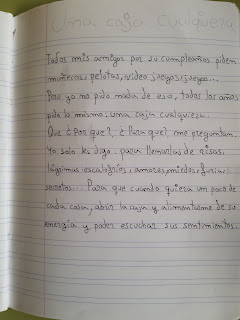 Una caja cualquiera
Todos mis amigos por su cumpleaños piden
muñecos, pelotas, video juegos, juegos...
Pero yo no pido nada de eso, todos los años
pido lo mismo: una caja cualquiera.
Que ¿Por que?, ¿Para que? me preguntan.
Yo solo les digo: para llenarlas de risas,
lágrimas, escalofríos, amores, miedos, furia,
secretos... Para que cuando quiera un poco de
cada cosa, abrir la caja y alimentarme de su
energía y poder escuchar sus sentimientos.